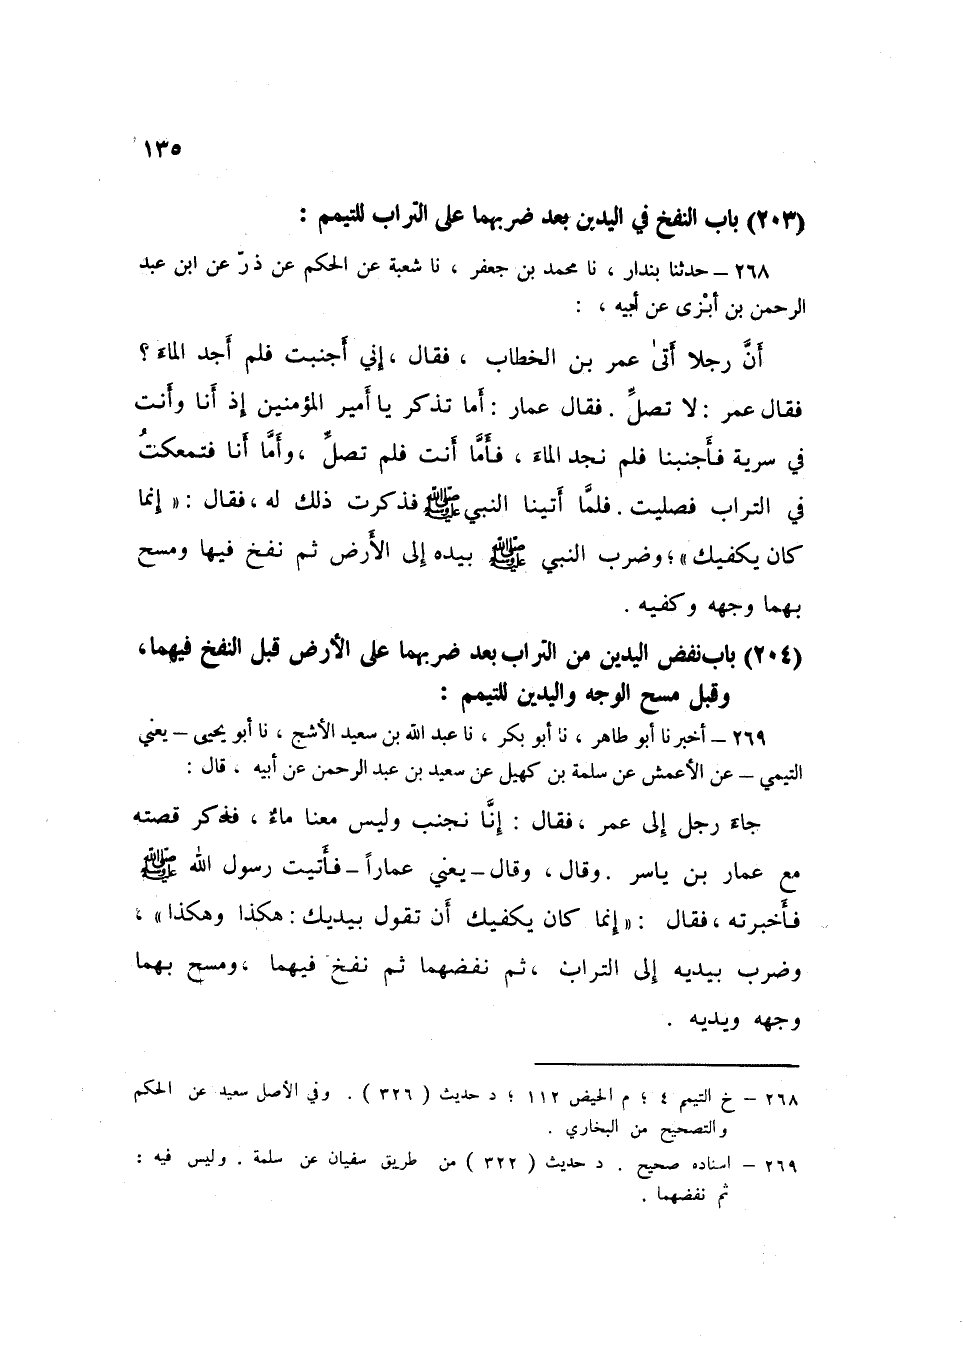 ١٣٥
(٢٠٣) باب النفخ في اليدين بعد ضربهما على التراب للتيمم :
٢٦٨ – حدثنا بندار ، نا محمد بن جعفر ، نا شعبة عن الحكم عن ذرّ عن ابن عبد
الرحمن بن أبْزى عن أبيه ، :
أَنَّ رجلا أَتىٰ عمر بن الخطاب ، فقال ، إني أَجنبت فلم أَجد الماءَ ؟
فقال عمر : لا تصلِّ . فقال عمار : أَما تذكر يا أَمير المؤمنين إذ أَنا وأَنت
في سرية فأَجنبنا فلم نجد الماءَ ، فأَمَّا أَنت فلم تصلِّ ، وأَمَّا أَنا فتمعكتُ
في التراب فصليت . فلمَّا أَتينا النبي ﷺ فذكرت ذلك له ، فقال : « إنما
كان يكفيك » ؛ وضرب النبي ﷺ بيده إلى الأَرض ثم نفخ فيها ومسح
بهما وجهه وكفيه .
(٢٠٤) باب نفض اليدين من التراب بعد ضربهما على الأرض قبل النفخ فيهما ،
وقبل مسح الوجه واليدين للتيمم :
٢٦٩ – أخبرنا أبو طاهر ، نا أبو بكر ، نا عبد الله بن سعيد الأشج ، نا أبو يحيى – يعني
التيمي – عن الأعمش عن سلمة بن كهيل عن سعيد بن عبد الرحمن عن أبيه ، قال :
جاءَ رجل إلى عمر ، فقال : إنَّا نجنب وليس معنا ماءٌ ، فذكر قصته
مع عمار بن ياسر . وقال ، وقال – يعني عماراً – فأَتيت رسول الله ﷺ
فأَخبرته ، فقال : « إنما كان يكفيك أَن تقول بيديك : هكذا وهكذا » ،
وضرب بيديه إلى التراب ، ثم نفضهما ثم نفخ فيهما ، ومسح بهما
وجهه ويديه .
٢٦٨ – خ التيمم ٤ ؛ م الحيض ١١٢ ؛ د حديث ( ٣٢٦ ) . وفي الأصل سعيد عن الحكم
والتصحيح من البخاري .
٢٦٩ – اسناده صحيح . د حديث ( ٣٢٢ ) من طريق سفيان عن سلمة . وليس فيه :
ثم نفضهما .